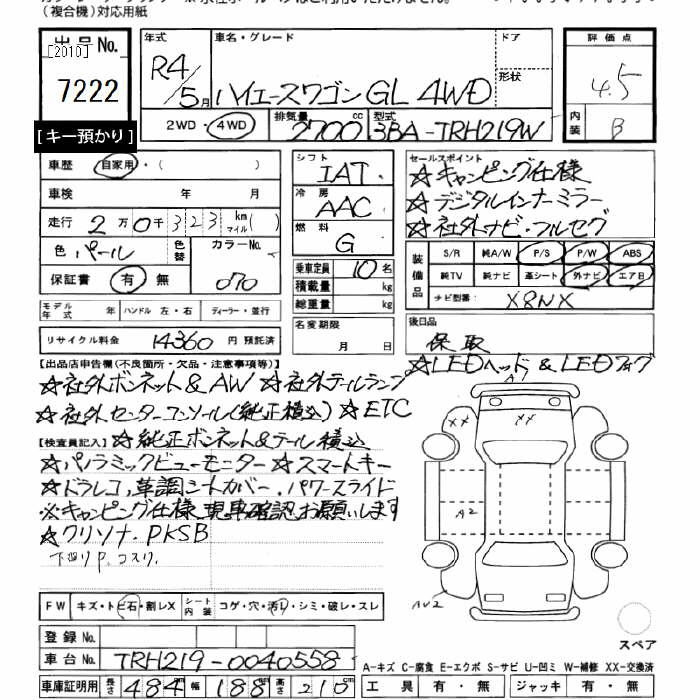 (複合機)対応用紙
出品No.
[2010]
7222
[キー預かり]
年式 R4/5月
車名・グレード ハイエースワゴン GL 4WD
ドア
形状
2WD・4WD 排気量 2700cc 型式 3BA-TRH219W
評価点 4.5
内装 B
車歴 自家用・( )
車検 年 月
走行 2万0千323km マイル( )
色 パール 色替 カラーNo. 070
保証書 有・無
モデル年式 年 ハンドル 左・右 ディーラー・並行
リサイクル料金 14360 円 預託済
シフト IAT
冷房 AAC
燃料 G
乗車定員 10名
積載量 kg
総重量 kg
名変期限 月 日
セールスポイント
☆キャンピング仕様
☆デジタルインナーミラー
☆社外ナビ・フルセグ
装備品 S/R 純A/W P/S P/W ABS
純TV 純ナビ 革シート 外ナビ エアB
ナビ型番 X8NX
後日品 保 取
☆LEDヘッド&LEDフォグ
[出品店申告欄(不良箇所・欠品・注意事項等)]
☆社外ボンネット&AW ☆社外テールランプ
☆社外センターコンソール(純正積込) ☆ETC
[検査員記入] ☆純正ボンネット&テール積込
☆パノラミックビューモニター ☆スマートキー
☆ドラレコ、革調シートカバー、パワースライド
※キャンピング仕様、現車確認お願いします
☆クリソナ、PKSB
下回りP、コスリ
A1
XX XX
A2
AU2
スペア
FW キズ・トビ石・割レX シート内装 コゲ・穴・汚レ・シミ・破レ・スレ
登録No.
車台No. TRH219-0040558
車庫証明用 長さ 484 幅 188 高さ 210
A-キズ C-腐食 E-エクボ S-サビ U-凹ミ W-補修 XX-交換済
工具 有・無 ジャッキ 有・無